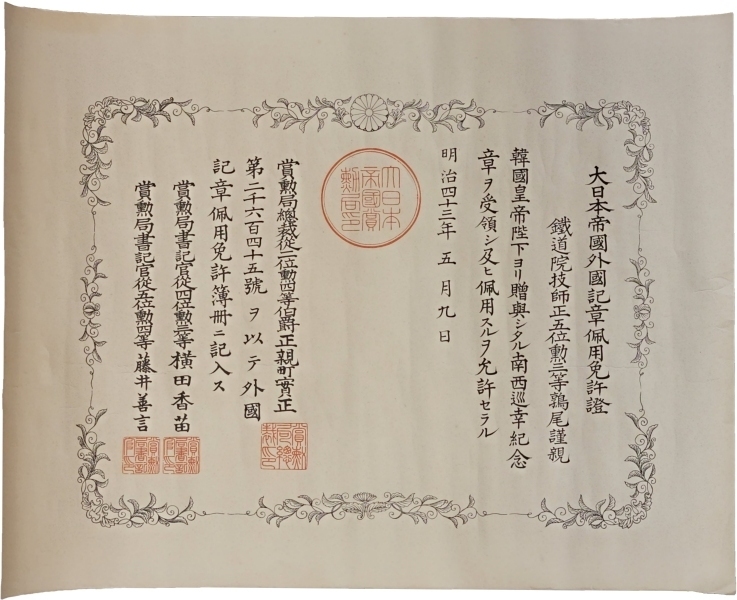 大日本帝國外國記章佩用免許證
鐵道院技師正五位勳三等鶉尾謹親
韓國皇帝陛下ヨリ贈與シタル南西巡幸紀念
章ヲ受領シ及ヒ佩用スルヲ允許セラル
明治四十三年五月九日
大日本
帝國賞
勲局印
賞勲局總裁從二位勲四等伯爵正親町實正
第二千六百四十五號ヲ以テ外國
記章佩用免許簿冊ニ記入ス
賞勲局書記官從四位勲三等橫田香苗
賞勲局書記官從五位勲四等藤井善言